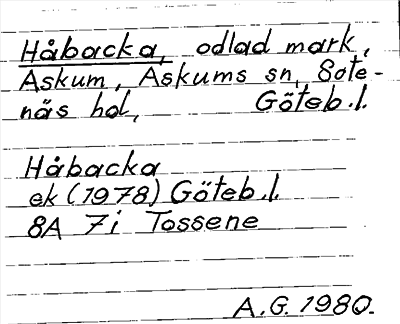 Håbacka, odlad mark,
Askum, Askums sn, Sote-
näs hd, Göteb.l.
Håbacka
ek (1978) Göteb.l.
8A 7i Tossene
A.G. 1980.